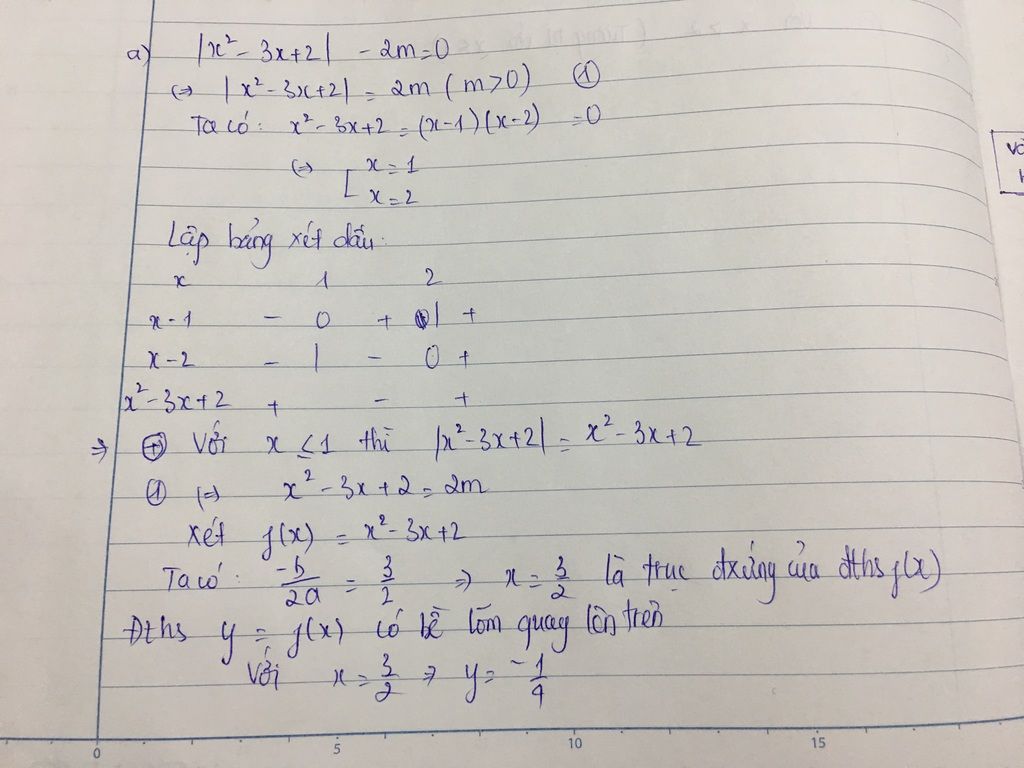 a) |x² - 3x+2| - 2m=0
⇔ | x² - 3x+2| = 2m ( m>0) ①
Ta có: x² - 3x+2 = (x-1)(x-2) =0
⇔ [ x = 1
x = 2
Lập bảng xét dấu:
x 1 2
x-1 - 0 + | +
x-2 - | - 0 +
x² - 3x+2 + - +
⇒ ⊕ Với x ≤ 1 thì |x²-3x+2| = x² - 3x+2
① ⇔ x² - 3x + 2 = 2m
Xét f(x) = x² - 3x+2
Ta có: -b/2a = 3/2 ⇒ x = 3/2 là trục đxứng của đths f(x)
Đths y = f(x) có bề lõm quay lên trên
Với x = 3/2 ⇒ y = -1/4
0 5 10 15